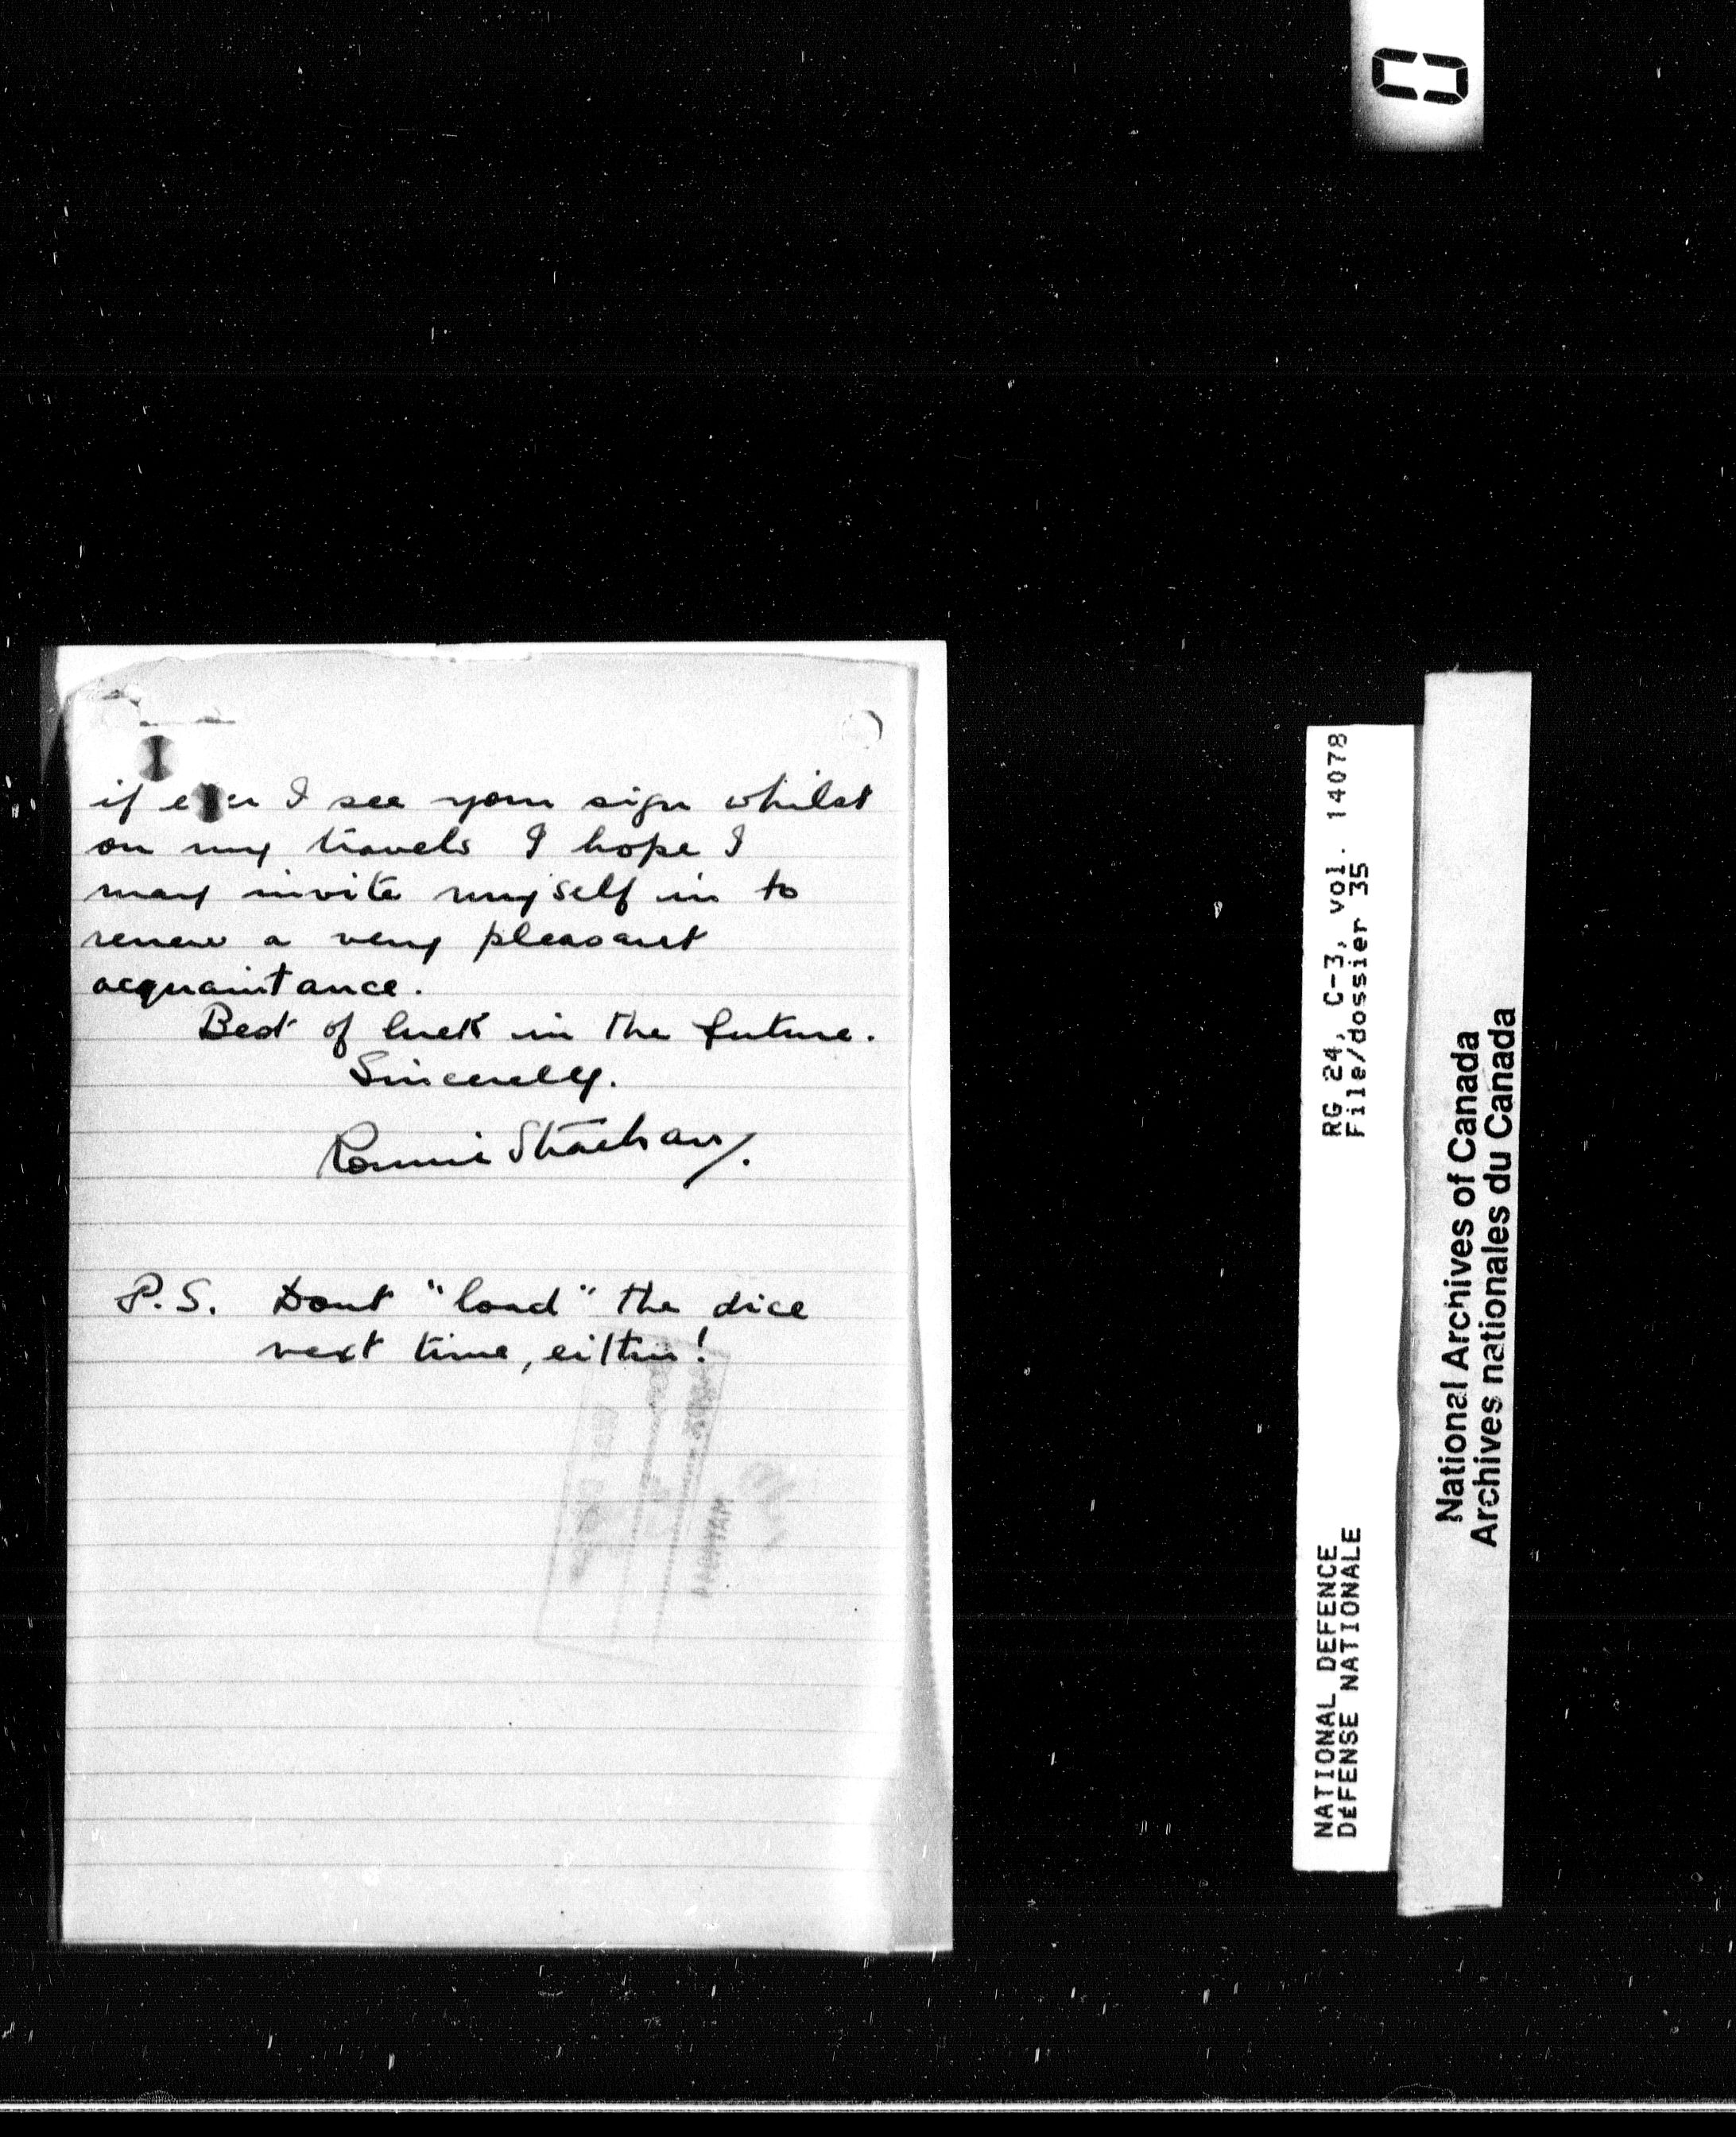 if ever I see your sign whilst
on my travels I hope I
may invite myself in to
renew a very pleasant
acquaintance.
Best of luck in the future.
Sincerely.
Ronnie Strachan.
P.S. Dont "load" the dice
next time, either!
RG 24, C-3, vol. 14078
File/dossier 35
NATIONAL DEFENCE
DÉFENSE NATIONALE
National Archives of Canada
Archives nationales du Canada